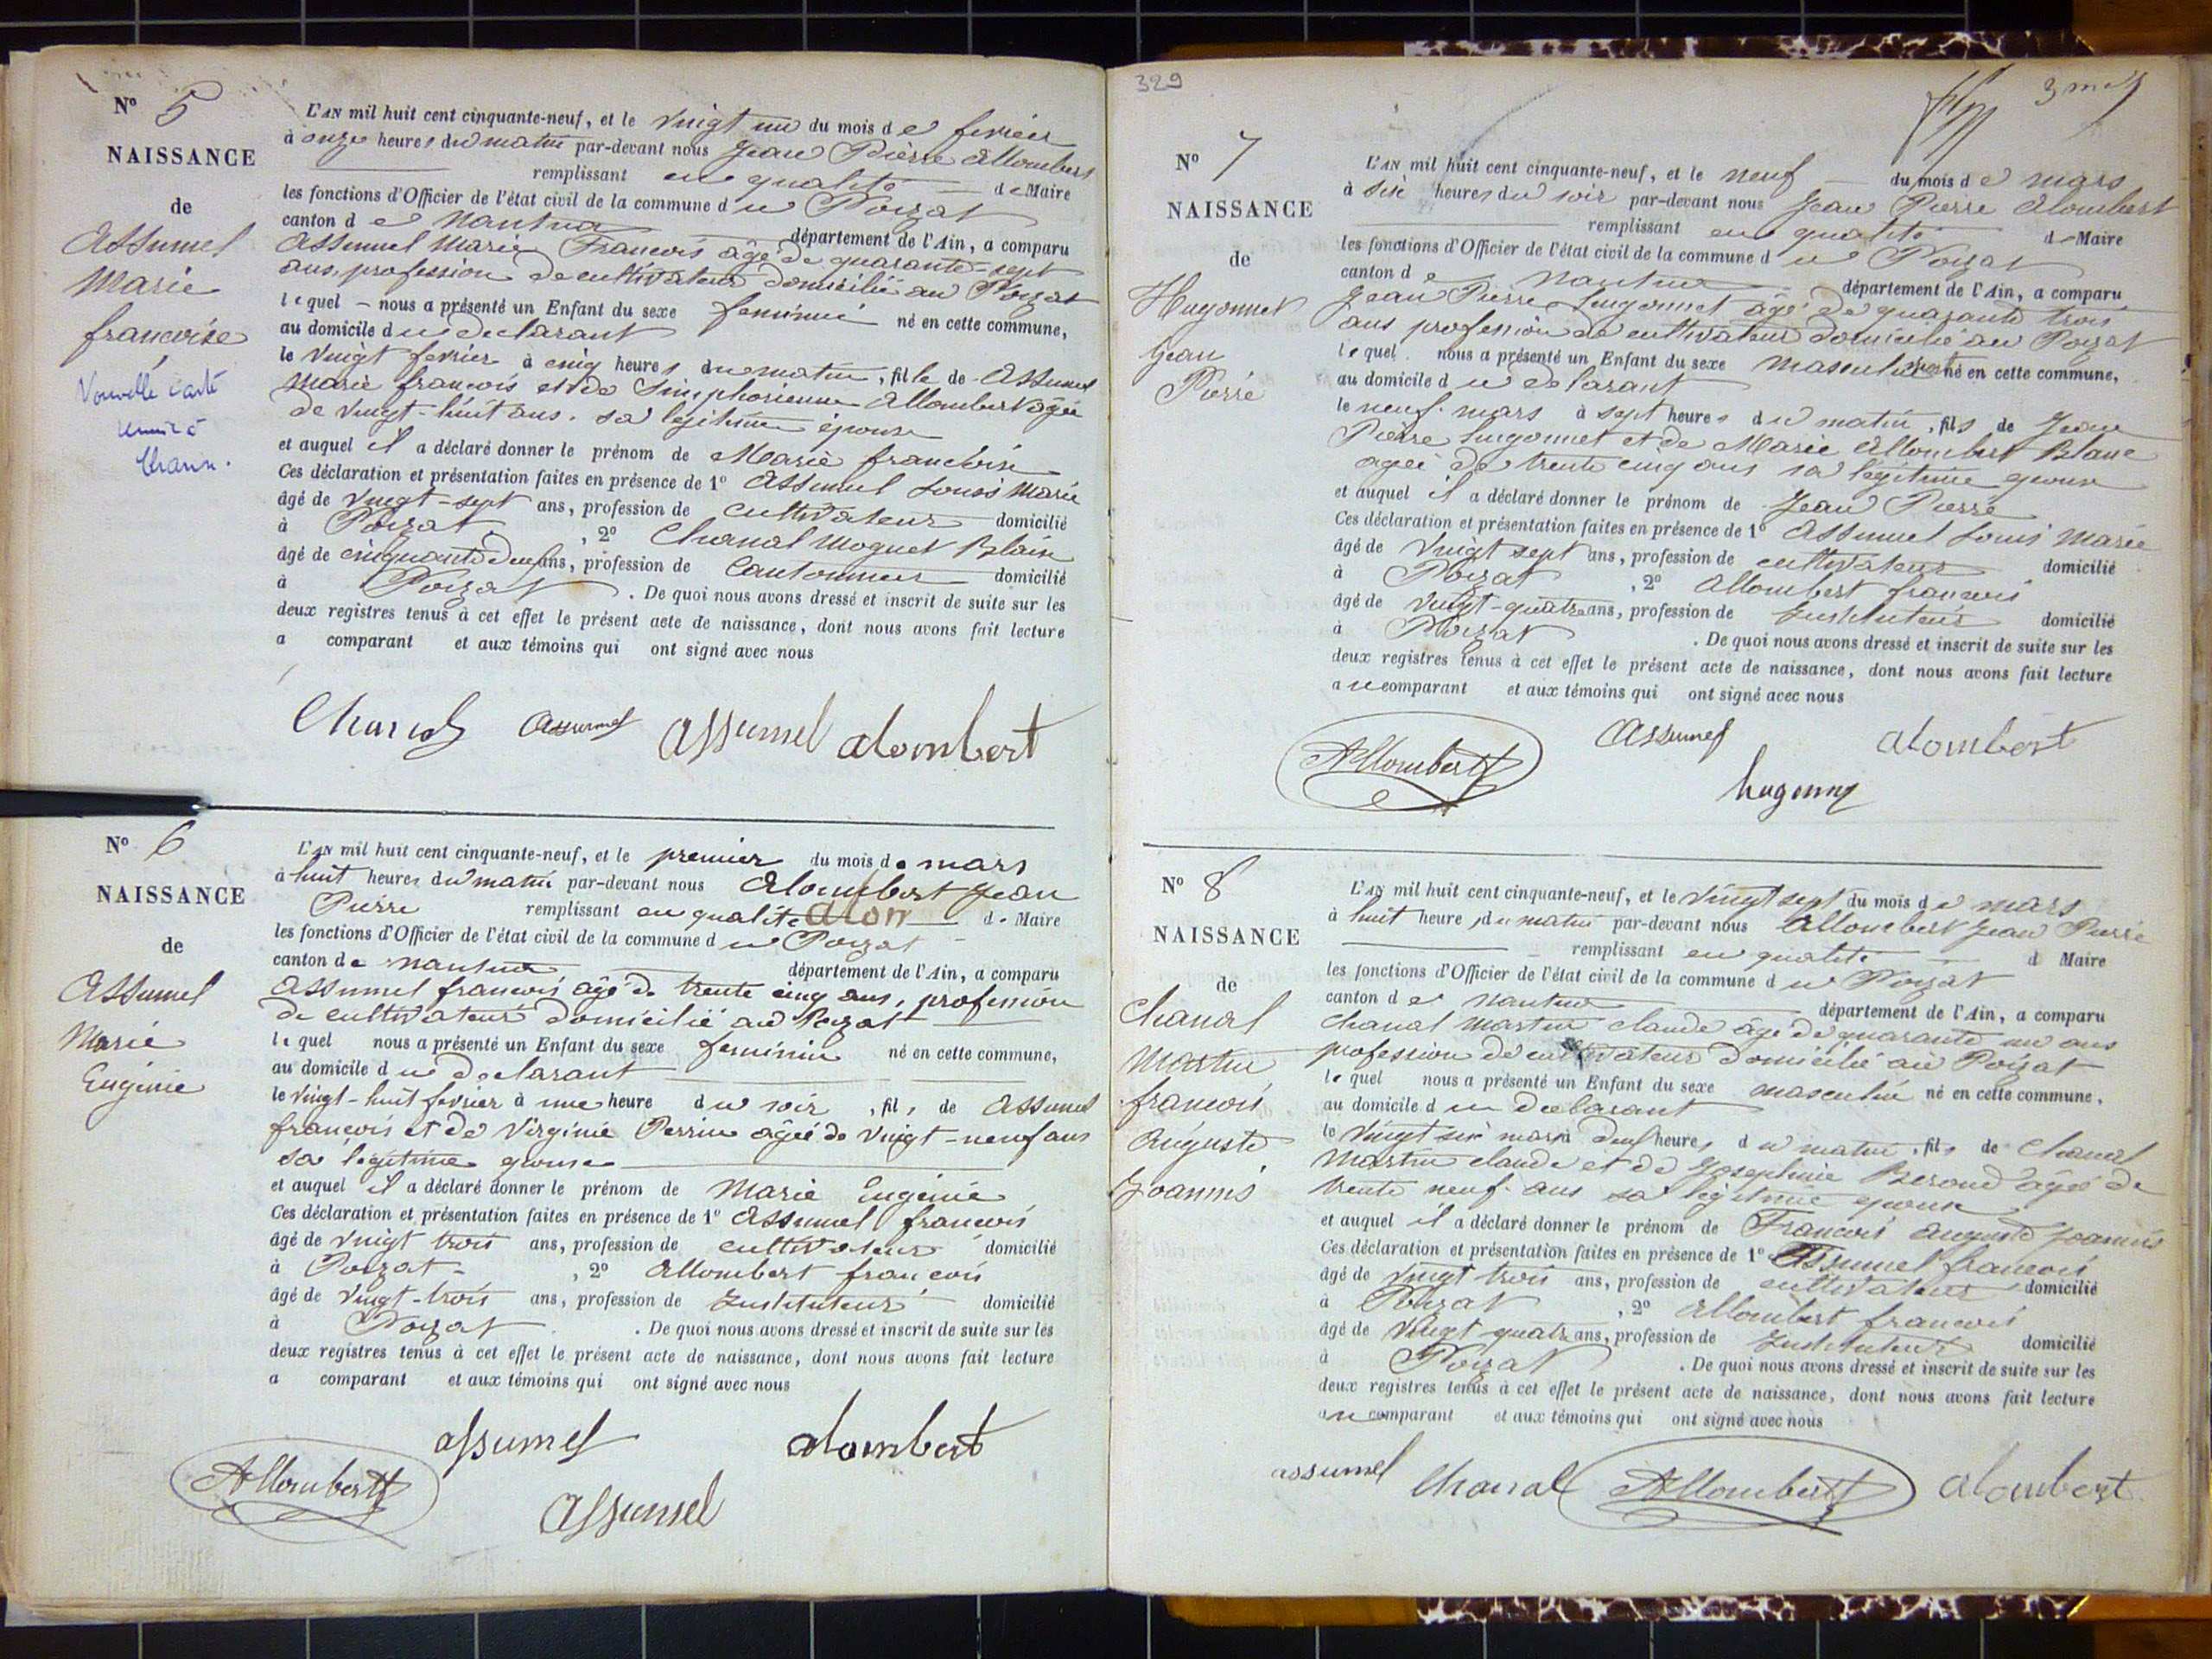 N° 5
NAISSANCE
de
Assumel
Marie
francoise
Nouvelle carte
L'AN mil huit cent cinquante-neuf, et le vingt un du mois de fevrier
à onze heures du matin par-devant nous Jean Pierre Allombert
remplissant en qualité de Maire
les fonctions d'Officier de l'état civil de la commune du Poizat
canton de Nantua département de l'Ain, a comparu
Assumel Marie Francois âgé de quarante-sept
ans, profession de cultivateur domicilié au Poizat
lequel nous a présenté un Enfant du sexe feminin né en cette commune,
au domicile du declarant
le vingt fevrier à cinq heures du matin, fille de Assumel
Marie francois et de Simphorienne Allombert âgée
de vingt-huit ans. sa legitime epouse
et auquel il a déclaré donner le prénom de Marie francoise
Ces déclaration et présentation faites en présence de 1° Assumel Louis Marie
âgé de vingt-sept ans, profession de cultivateur domicilié
à Poizat, 2° Chanal Moguet Blain
âgé de cinquante deux ans, profession de Cantonnier domicilié
à Poizat. De quoi nous avons dressé et inscrit de suite sur les
deux registres tenus à cet effet le présent acte de naissance, dont nous avons fait lecture
a comparant et aux témoins qui ont signé avec nous
Chanal Assumel assumel alombert
N° 6
NAISSANCE
de
Assumel
Marie
Eugenie
L'AN mil huit cent cinquante-neuf, et le premier du mois de mars
à huit heures du matin par-devant nous Alombert Jean
Pierre remplissant en qualite alon de Maire
les fonctions d'Officier de l'état civil de la commune du Poizat
canton de nantua département de l'Ain, a comparu
Assumel francois âgé de trente cinq ans, profession
de cultivateur domicilié au Poizat
lequel nous a présenté un Enfant du sexe feminin né en cette commune,
au domicile du declarant
le vingt-huit fevrier à une heure du soir, fil, de Assumel
francois et de Virginie Perrin âgée de vingt-neuf ans
sa legitime epouse
et auquel il a déclaré donner le prénom de Marie Eugenie
Ces déclaration et présentation faites en présence de 1° Assumel francois
âgé de vingt trois ans, profession de cultivateur domicilié
à Poizat, 2° Allombert francois
âgé de vingt-trois ans, profession de Instituteur domicilié
à Poizat. De quoi nous avons dressé et inscrit de suite sur les
deux registres tenus à cet effet le présent acte de naissance, dont nous avons fait lecture
a comparant et aux témoins qui ont signé avec nous
assumel alombert
Allombert assumel
329
3 m
N° 7
NAISSANCE
de
Hugonnet
Jean
Pierre
L'AN mil huit cent cinquante-neuf, et le neuf du mois de mars
à six heures du soir par-devant nous Jean Pierre Alombert
remplissant en qualité de Maire
les fonctions d'Officier de l'état civil de la commune du Poizat
canton de Nantua département de l'Ain, a comparu
Jean Pierre hugonnet âgé de quarante trois
ans profession de cultivateur domicilié au Poizat
lequel nous a présenté un Enfant du sexe masculin né en cette commune,
au domicile du declarant
le neuf mars à sept heures du matin, fils de Jean
Pierre hugonnet et de Marie Allombert Blanc
agée de trente cinq ans sa légitime epouse
et auquel il a déclaré donner le prénom de Jean Pierre
Ces déclaration et présentation faites en présence de 1° Assumel Louis Marie
âgé de vingt sept ans, profession de cultivateur domicilié
à Poizat, 2° Allombert francois
âgé de vingt-quatre ans, profession de Instituteur domicilié
à Poizat. De quoi nous avons dressé et inscrit de suite sur les
deux registres tenus à cet effet le présent acte de naissance, dont nous avons fait lecture
au comparant et aux témoins qui ont signé avec nous
Allombert Assumel alombert
hugonnet
N° 8
NAISSANCE
de
Chanal
Martin
francois
Auguste
Joannis
L'AN mil huit cent cinquante-neuf, et le vingt sept du mois de mars
à huit heures du matin par-devant nous Allombert Jean Pierre
remplissant en qualité d Maire
les fonctions d'Officier de l'état civil de la commune du Poizat
canton de Nantua département de l'Ain, a comparu
Chanal Martin claude âgé de quarante un ans
profession de cultivateur domicilié au Poizat
lequel nous a présenté un Enfant du sexe masculin né en cette commune,
au domicile du declarant
le vingt six mars à deux heures du matin, fils de Chanal
Martin claude et de Josephine Beroud âgée de
trente neuf ans sa légitime epouse
et auquel il a déclaré donner le prénom de Francois Auguste Joannis
Ces déclaration et présentation faites en présence de 1° Assumel francois
âgé de vingt trois ans, profession de cultivateur domicilié
à Poizat, 2° Allombert francois
âgé de vingt quatre ans, profession de Instituteur domicilié
à Poizat. De quoi nous avons dressé et inscrit de suite sur les
deux registres tenus à cet effet le présent acte de naissance, dont nous avons fait lecture
au comparant et aux témoins qui ont signé avec nous
assumel Chanal Allombert alombert